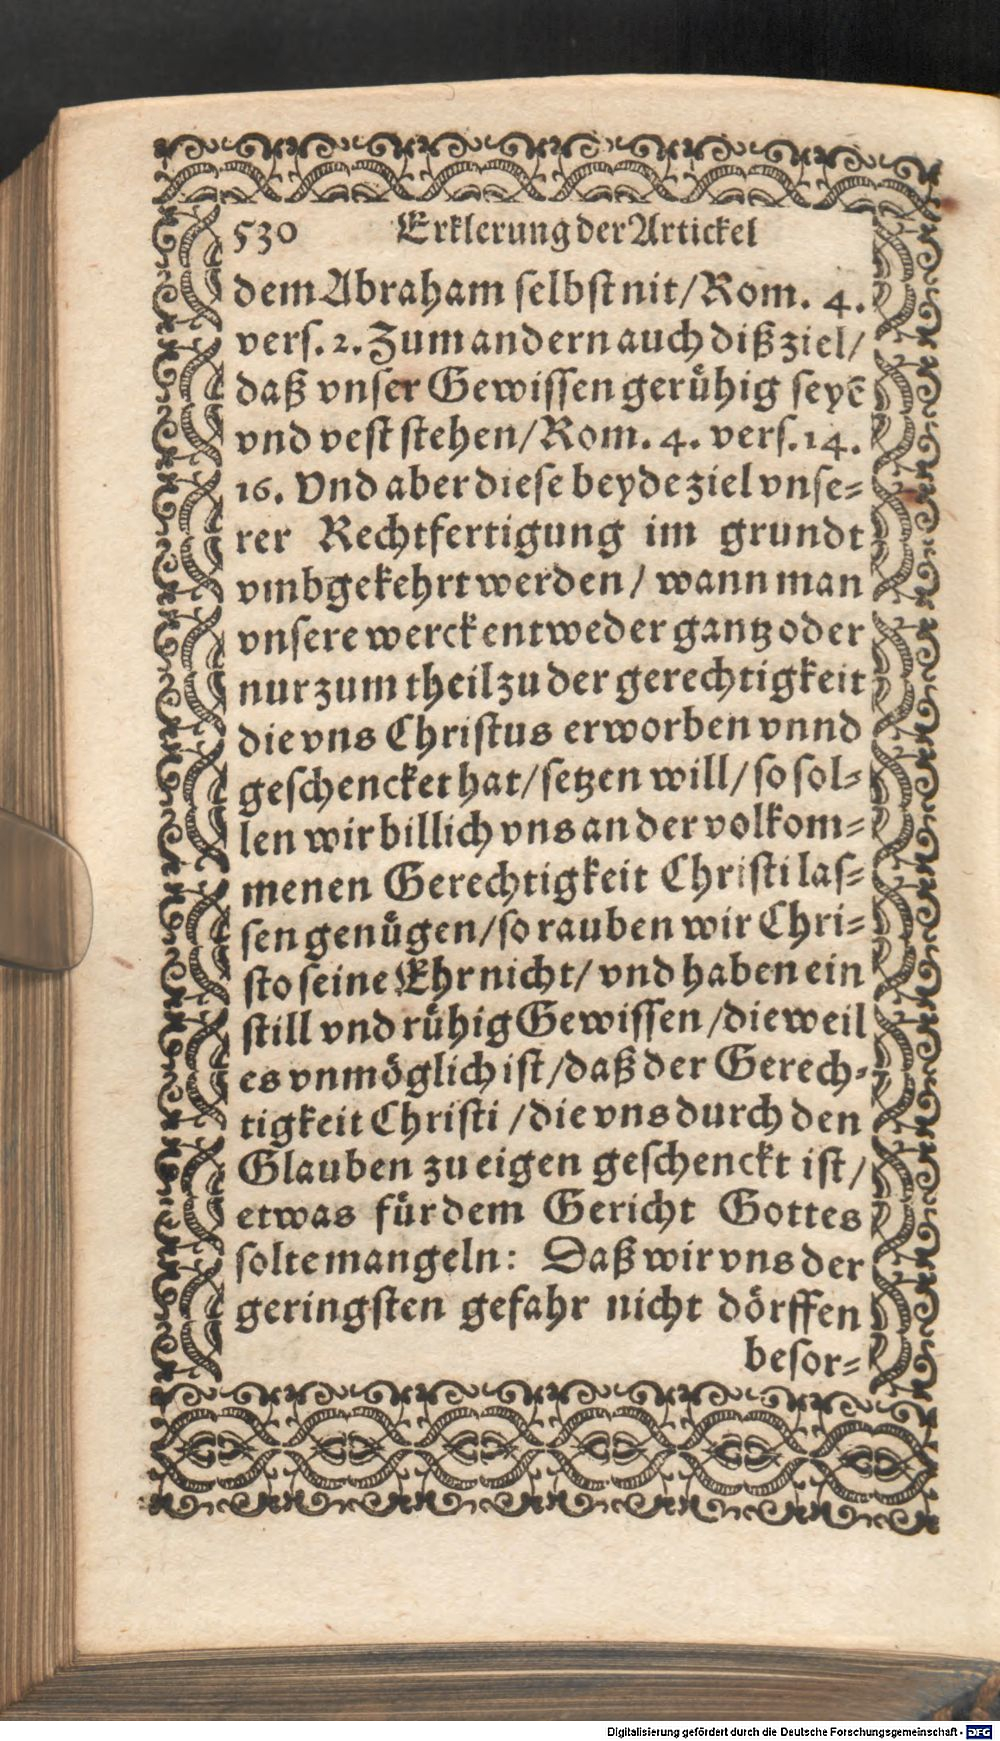 530 Erklerung der Artickel
dem Abraham selbst nit/Rom. 4.
vers. 2. Zum andern auch diß ziel/
daß vnser Gewissen gerühig seyẽ
vnd vest stehen/Rom. 4. vers. 14.
16. Vnd aber diese beyde ziel vnse=
rer Rechtfertigung im grundt
vmbgekehrt werden/ wann man
vnsere werck entweder gantz oder
nur zum theil zu der gerechtigkeit
die vns Christus erworben vnnd
geschencket hat/setzen will/so sol=
len wir billich vns an der volkom=
menen Gerechtigkeit Christi las=
sen genügen/so rauben wir Chri=
sto seine Ehr nicht/ vnd haben ein
still vnd rühig Gewissen /dieweil
es vnmöglich ist/daß der Gerech=
tigkeit Christi /die vns durch den
Glauben zu eigen geschenckt ist/
etwas für dem Gericht Gottes
solte mangeln: Daß wir vns der
geringsten gefahr nicht dörffen
besor=
Digitalisierung gefördert durch die Deutsche Forschungsgemeinschaft - DFG